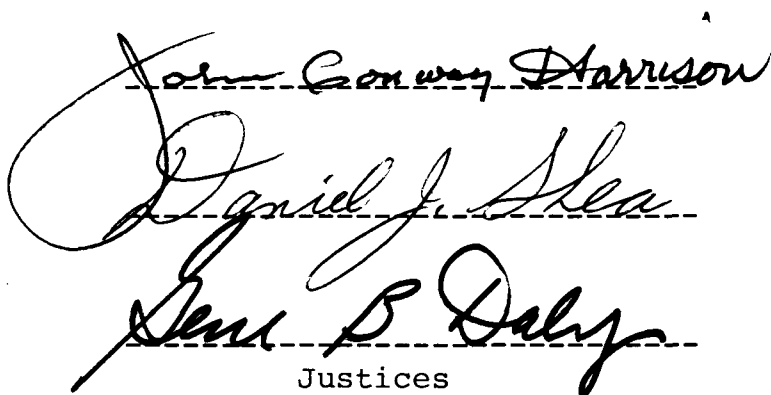 John Conway Harrison
Daniel J. Shea
Gene B Daly
Justices